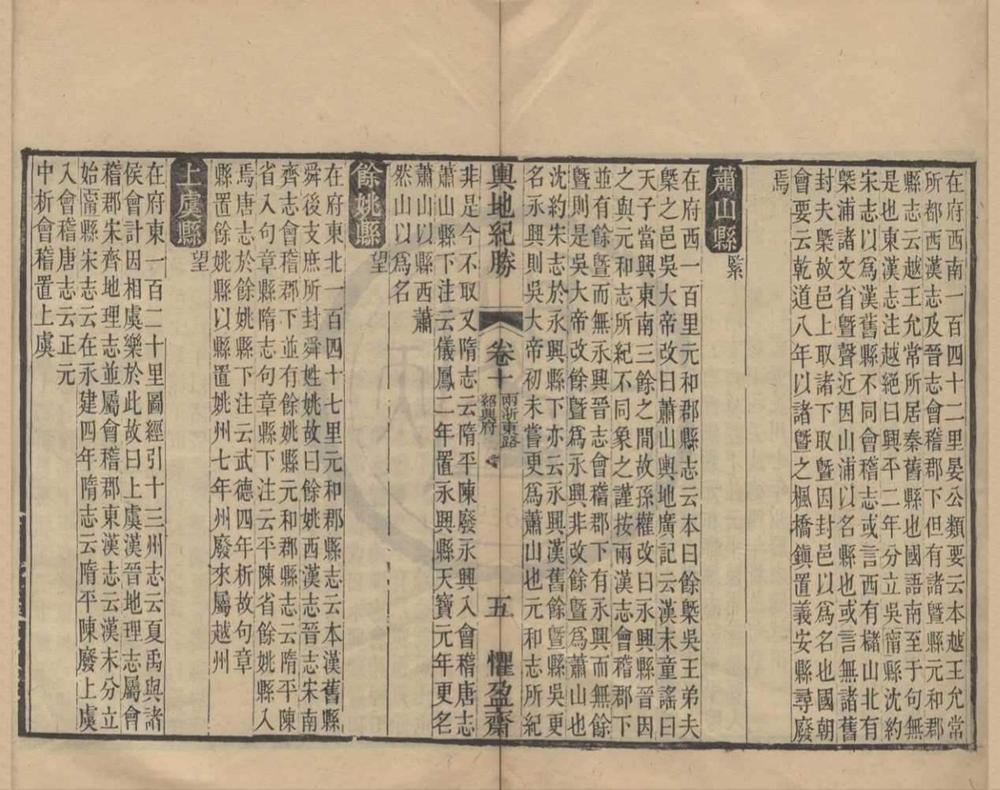 在府西南一百四十二里晏公類要云本越王允常
所都西漢志及晉志會稽郡下但有諸暨縣元和郡
縣志云越王允常所居秦舊縣也國語南至于句無
是也東漢志注越絕曰興平二年分立吳甯縣沈約
宋志以爲漢舊縣不同會稽志或言西有櫧山北有
槩浦諸文省暨聲近因山浦以名縣也或言無諸舊
封夫槩故邑上取諸下取暨因封邑以爲名也國朝
會要云乾道八年以諸暨之楓橋鎮置義安縣尋廢
焉
蕭山縣緊
在府西一百里元和郡縣志云本曰餘槩吳王弟夫
槩之邑吳大帝改曰蕭山輿地廣記云漢末童謠曰
天子當興東南三餘之閒故孫權改曰永興縣晉因
之與元和志所紀不同象之謹按兩漢志會稽郡下
並有餘暨而無永興晉志會稽郡下有永興而無餘
暨則是吳大帝改餘暨爲永興非改餘暨爲蕭山也
沈約宋志於永興縣下亦云永興漢舊餘暨縣吳更
名永興則吳大帝初未嘗更爲蕭山也元和志所紀
輿地紀勝 卷十 兩浙東路 紹興府 五 懼盈齋
非是今不取又隋志云隋平陳廢永興入會稽唐志
蕭山縣下注云儀鳳二年置永興縣天寶元年更名
蕭山以縣西蕭
然山以爲名
餘姚縣望
在府東北一百四十七里元和郡縣志云本漢舊縣
舜後支庶所封舜姓姚故曰餘姚西漢志晉志宋南
齊志會稽郡下並有餘姚縣元和郡縣志云隋平陳
省入句章縣隋志句章縣下注云平陳省餘姚縣入
焉唐志於餘姚縣下注云武德四年析故句章
縣置餘姚縣以縣置姚州七年州廢來屬越州
上虞縣望
在府東一百二十里圖經引十三州志云夏禹與諸
侯會計因相虞樂於此故曰上虞漢晉地理志屬會
稽郡宋齊地理志並屬會稽郡東漢志云漢末分立
始甯縣宋志云在永建四年隋志云隋平陳廢上虞
入會稽唐志云正元
中析會稽置上虞